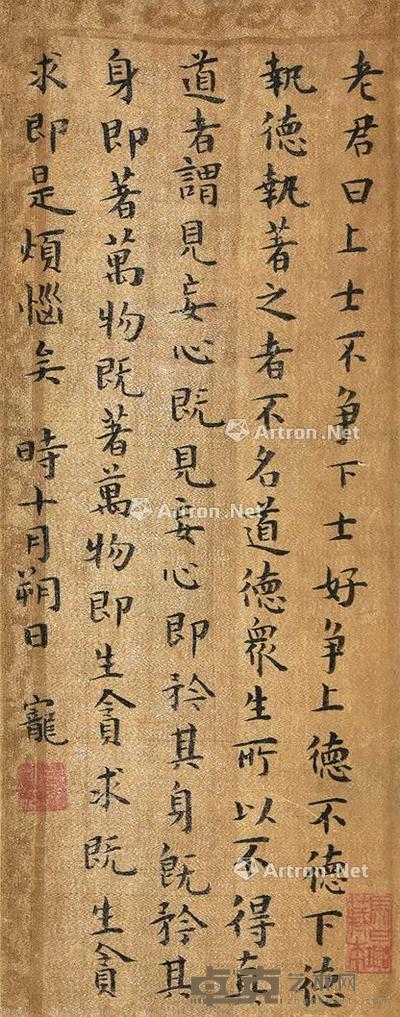 老君曰上士不争下士好争上德不德下德
執德執著之者不名道德衆生所以不得真
道者謂見妄心既見妄心即矜其身既矜其
身即著萬物既著萬物即生貪求既生貪
求即是煩惱矣 時十月朔日 寵
Artron.Net
Artron.Net
Artron.Net
卓克艺术网